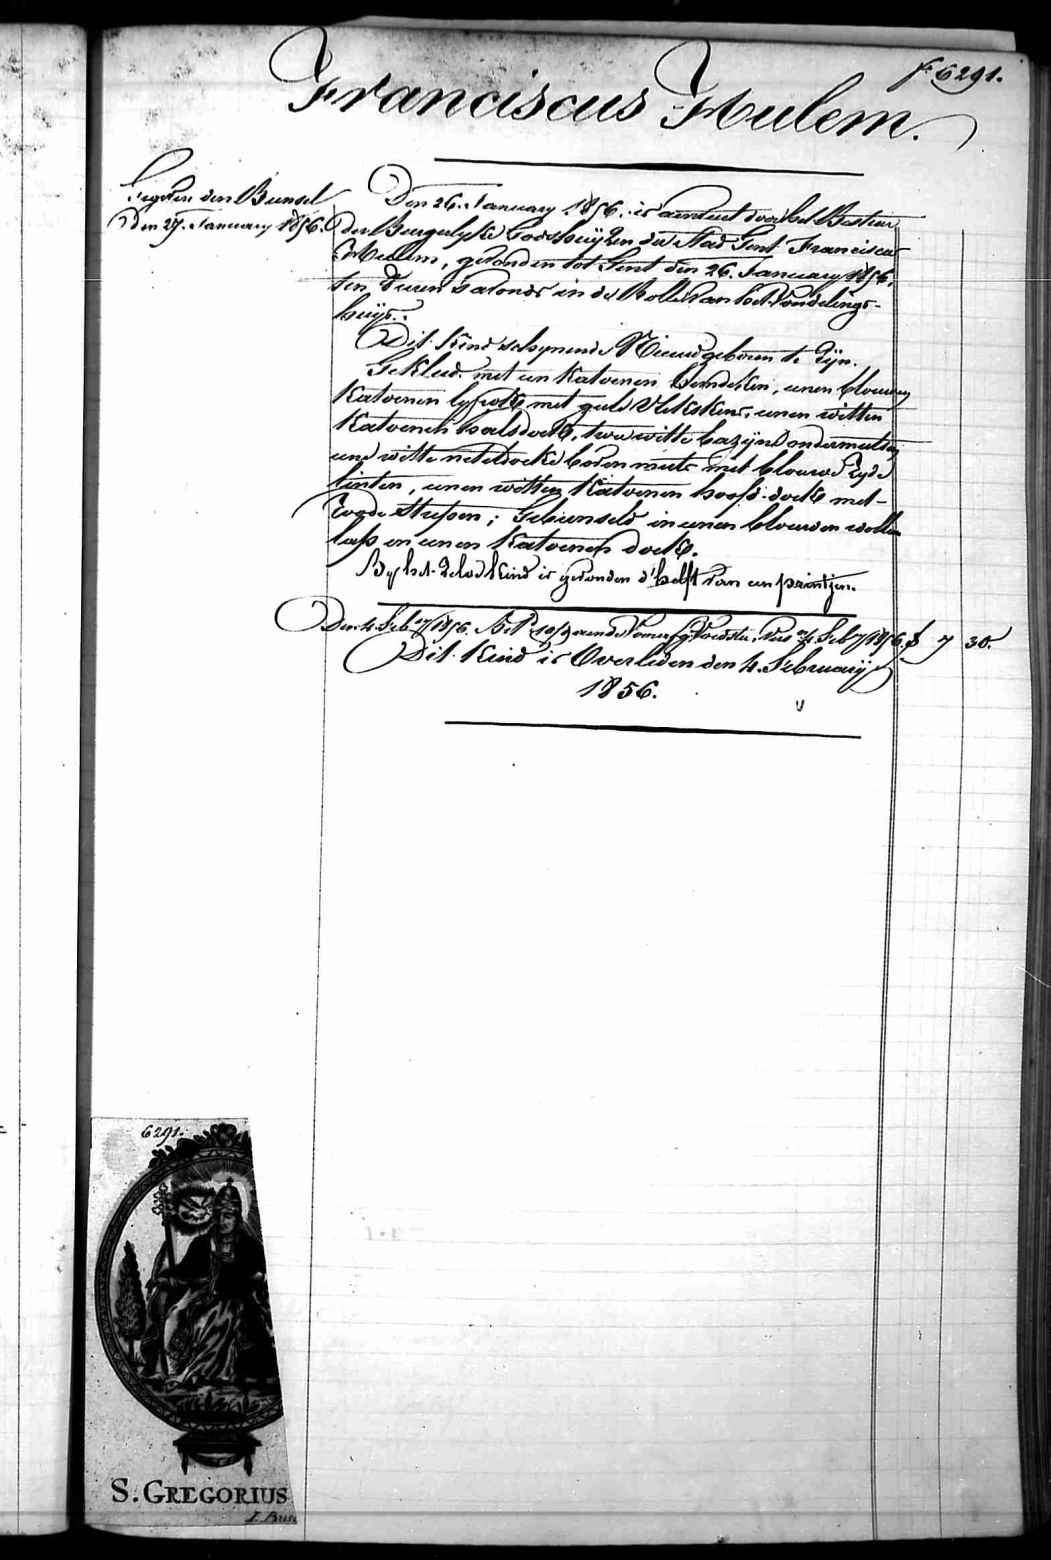 f° 6291.
Franciscus Hulem.
den Bunsel
Den 27. January 1856.
Den 26. January 1856. is aenveert door het Bestier
der Burgelyke Godshuÿzen der Stad Gent Franciscus
Hulem, gevonden tot Gent den 26. January 1856,
ten uren s'avonds in de Rolle van het Vondelings-
huÿs.
Dit Kind schynende Nieuwgeboren te Zÿn.
Gekleed met een Katoenen hemdeken, eenen blouwen
Katoenen lyfrok met gele Vlekskens, eenen witten
Katoenen halsdoek, twee witte bazÿne ondermutsen
eene witte neteldoeke boven muts met blouwe Zyde
linten, eenen witten Katoenen hoofd-doek met
roode strepen; Gebunseld in eenen blouwen wollen
lap en eenen Katoenen doek.
By het Zelve Kind is gevonden d'helft van een printjen.
Den 4. Feb 1856.
Dit Kind is Overleden den 4. February
1856.
7 30.
6291.
S. GREGORIUS